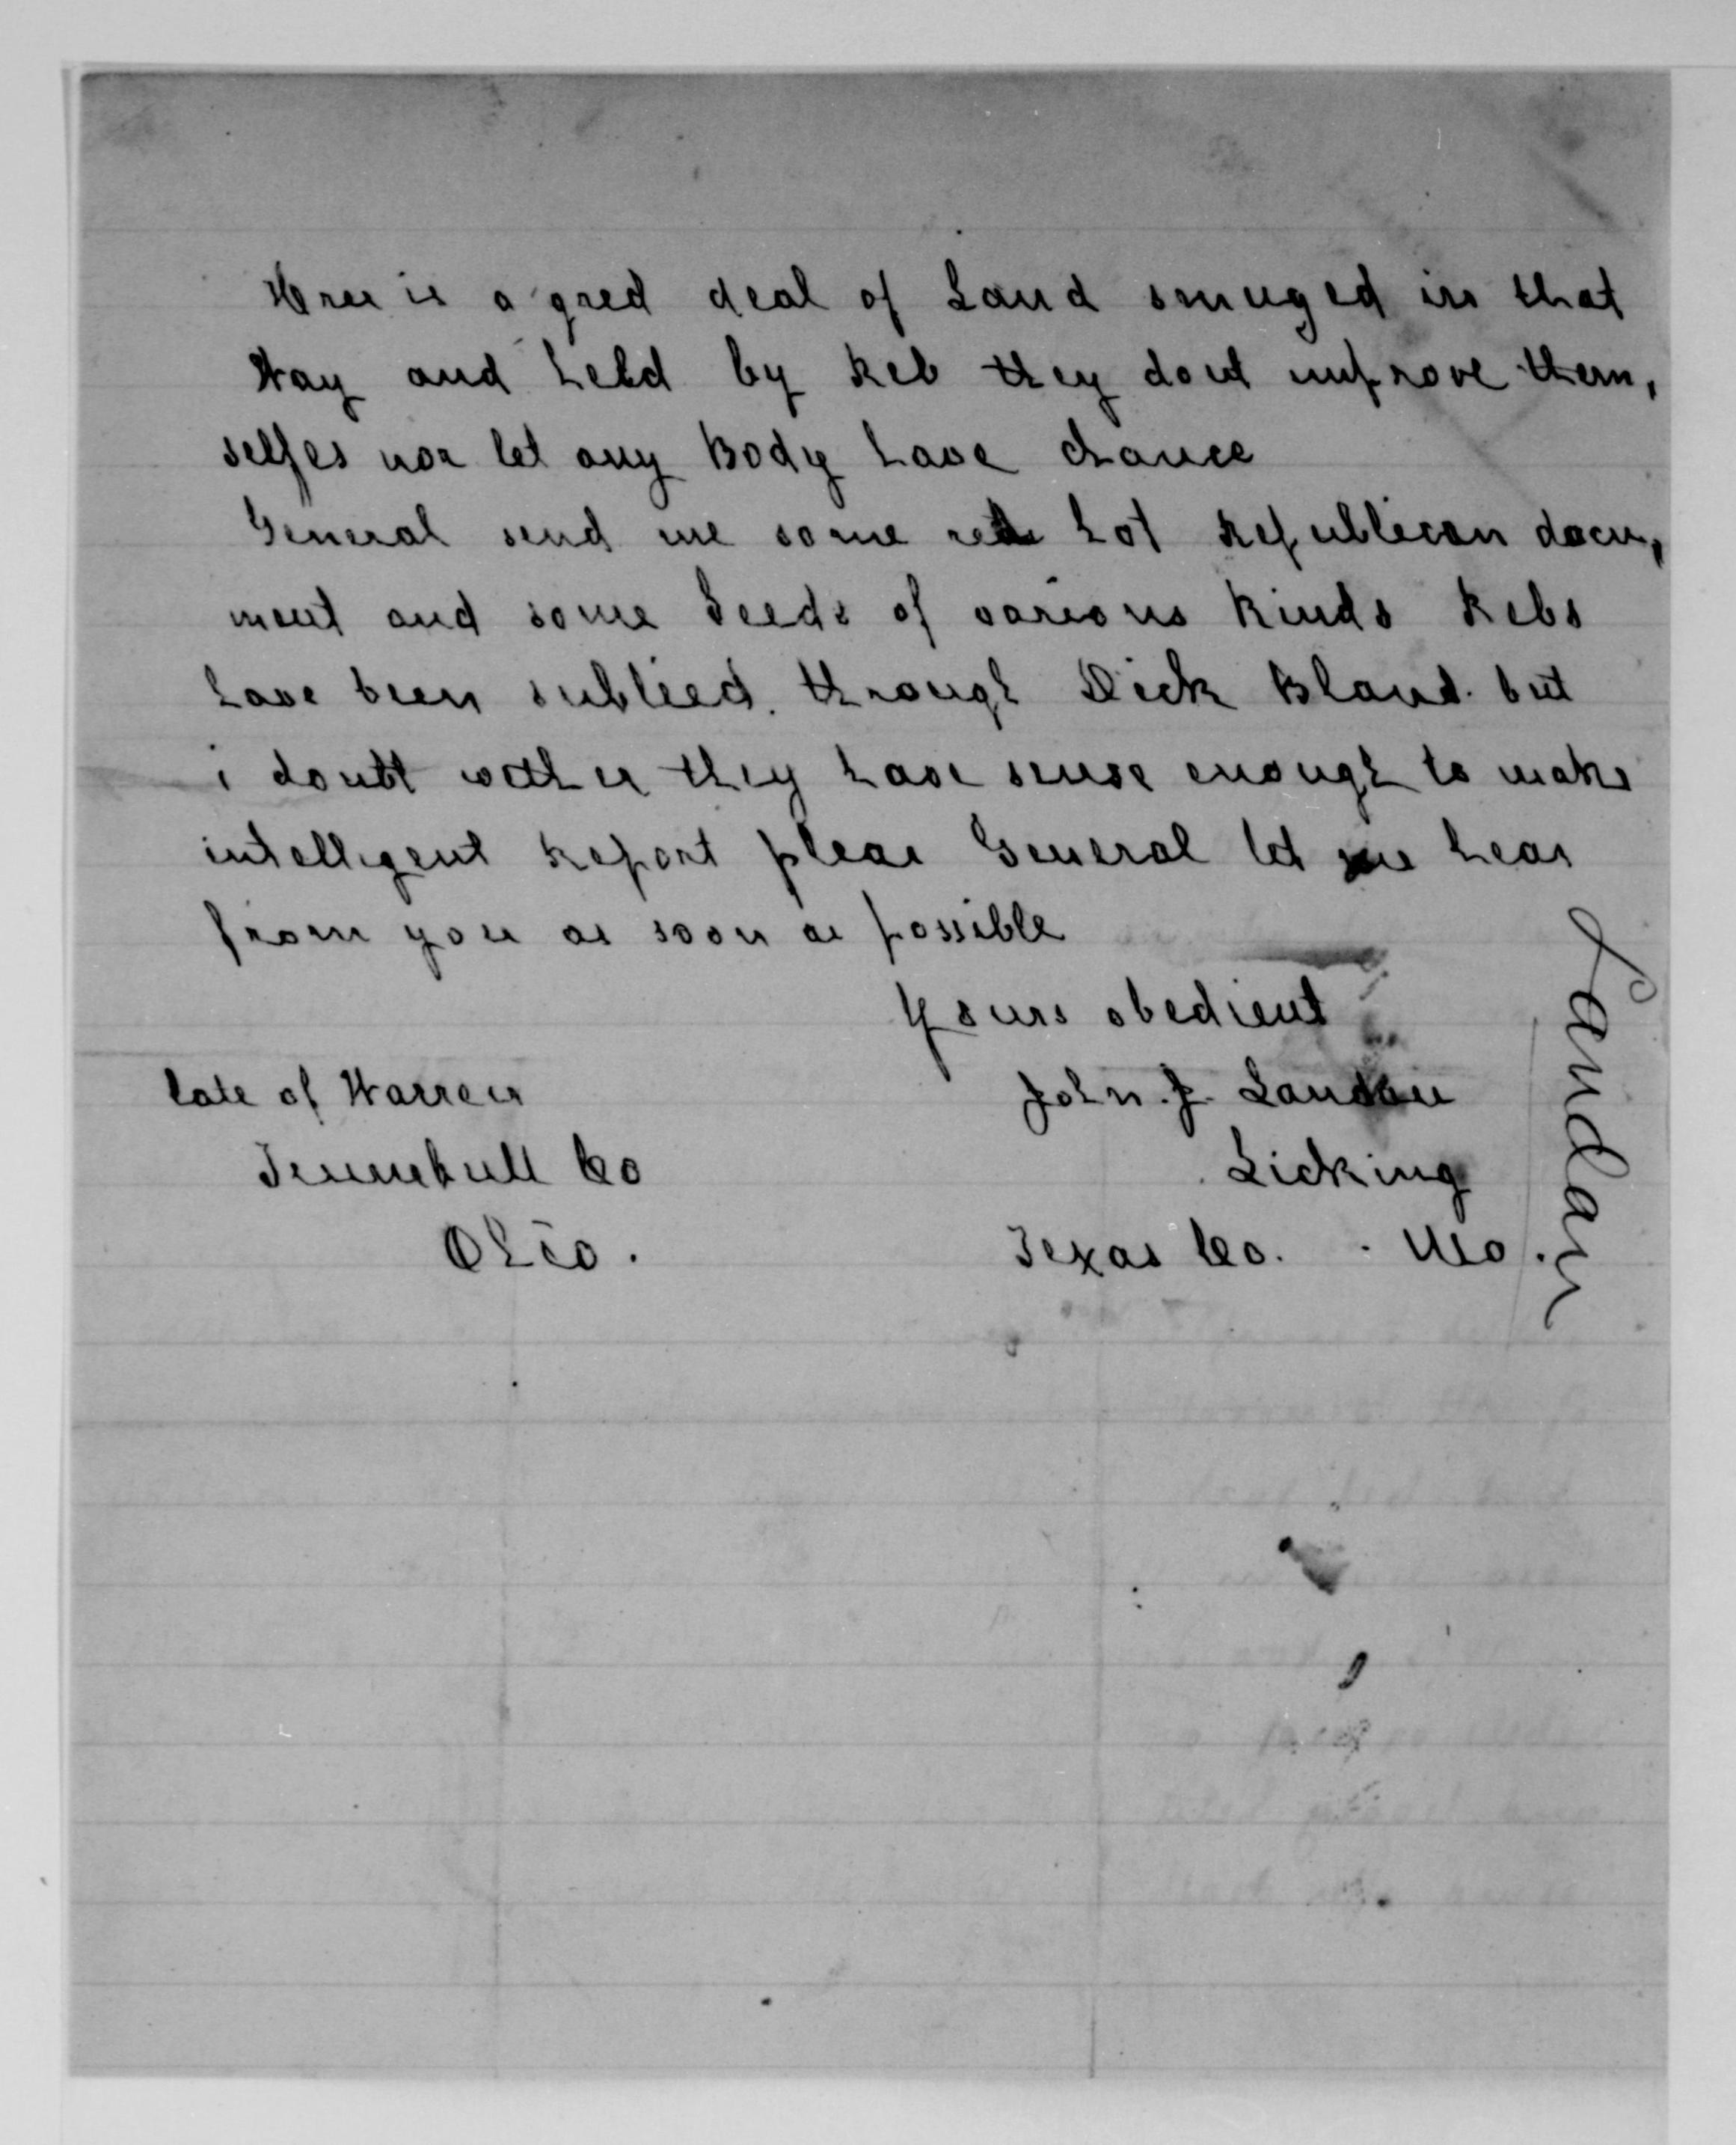 Hree is a gred deal of Land smuged in that
Way and held by Reb they dont improve them,
selfes nor let any Body have chance
General send me some red hot Republican docu,
ment and some Seeds of various Kinds Rebs
have been sublied. through Dick Bland. but
i doubt wether they have sense enough to make
intelligent Report pleas General let me hear
from you as soon as possible
Yours obedient
late of Warren John. J. Landau
Trumebull Co Licking
Ohio. Texas Co. Mo.
Landau